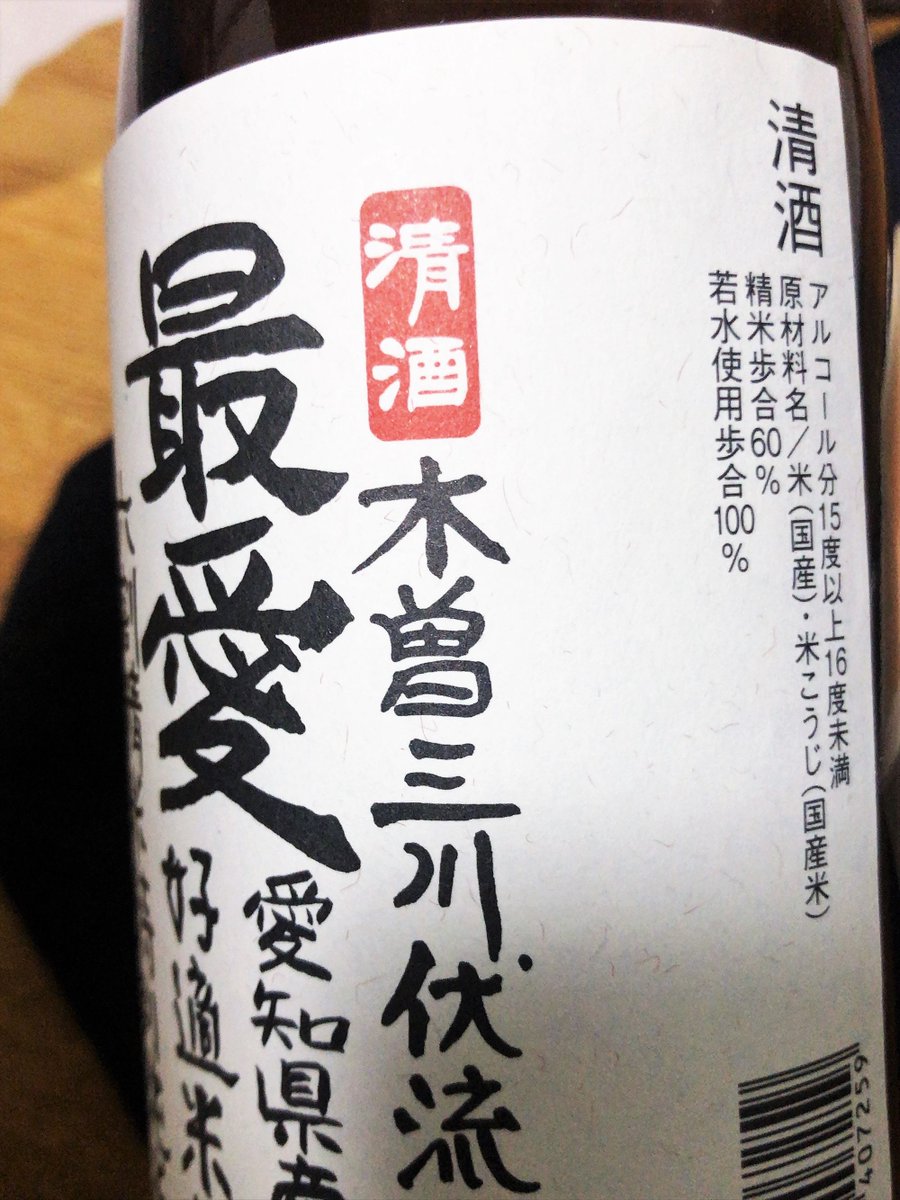 清酒
アルコール分15度以上16度未満
原材料名／米(国産)・米こうじ(国産米)
精米歩合60%
若水使用歩合100%
清酒
木曽三川伏流
最愛
愛知県産
好適米
407259